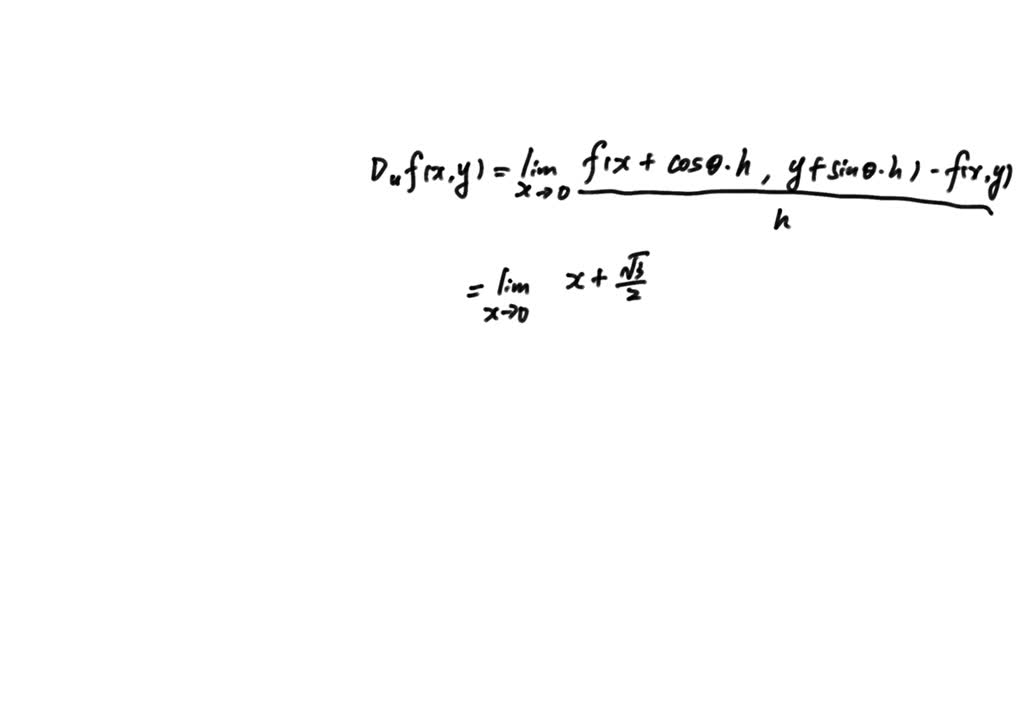 D_u f(x,y) = lim_{x→0} \frac{f(x + cosθ·h, y+sinθ·h) - f(x,y)}{h}
= lim_{x→0} x + \frac{√3}{2}